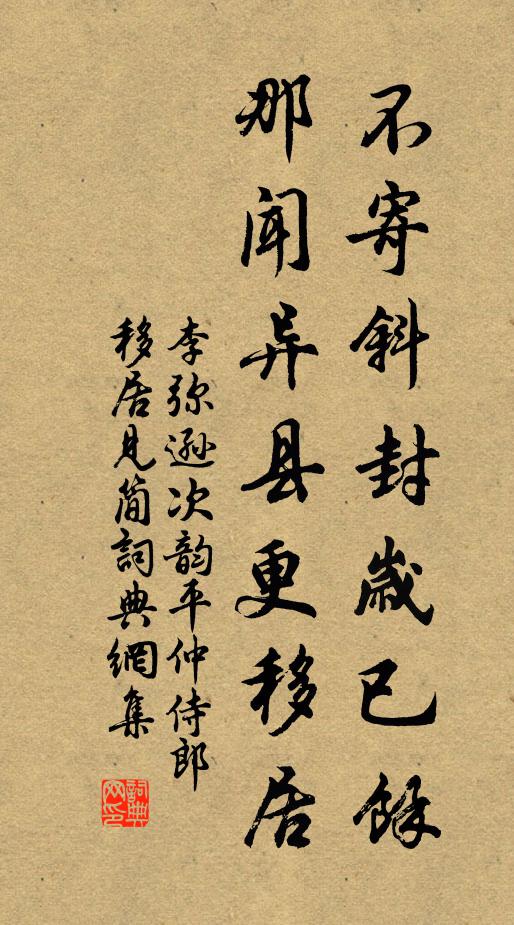 不寄斜封歲已餘
那聞异县更移居
李弥遜次韵平仲侍郎
移居見简詞典網集
詞典
网印